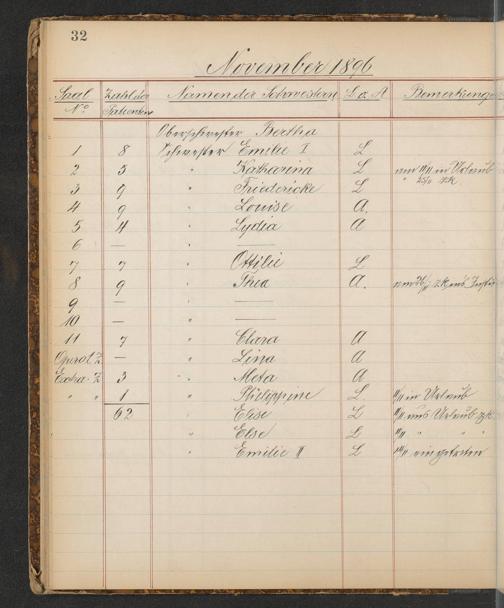 32
November 1896
Saal Zahl der Namen der Schwestern L & A Bemerkunge
No Patienten
Oberschwester Bertha
1 8 Schwester Emilie I L
2 5 " Katharina L vom in Urlaub
3 9 " Friedericke L
4 9 " Louise A.
5 4 " Lydia A
6 — " —
7 7 " Ottilie L
8 9 " Thea A.
9 — " —
10 — " —
11 7 " Clara A
Operat. Z. — " Lina A
Extra. Z 3 " Meta A
" " 1 " Philippine L. in Urlaub
62 " Elise L aus Urlaub zk.
" Else L " "
" Emilie II L eingetreten